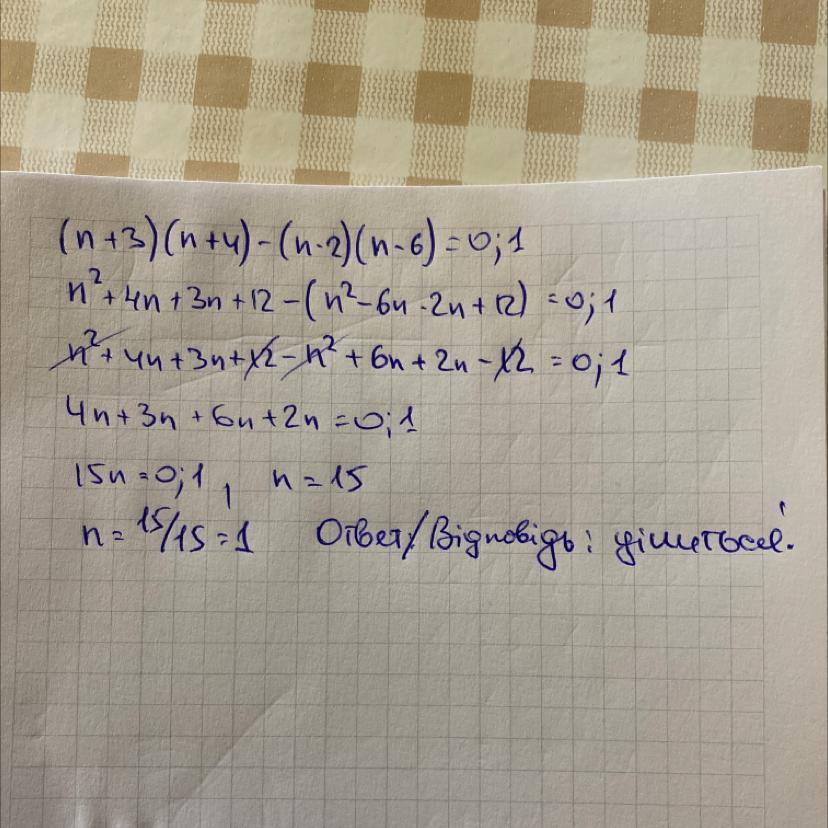 (n+3)(n+4)-(n-2)(n-6)=0;1
n²+4n+3n+12-(n²-6n-2n+12)=0;1
n²+4n+3n+12-n²+6n+2n-12=0;1
4n+3n+6n+2n=0;1
15n=0;1, n=15
n=15/15=1 Ответ/Відповідь: ділиться.